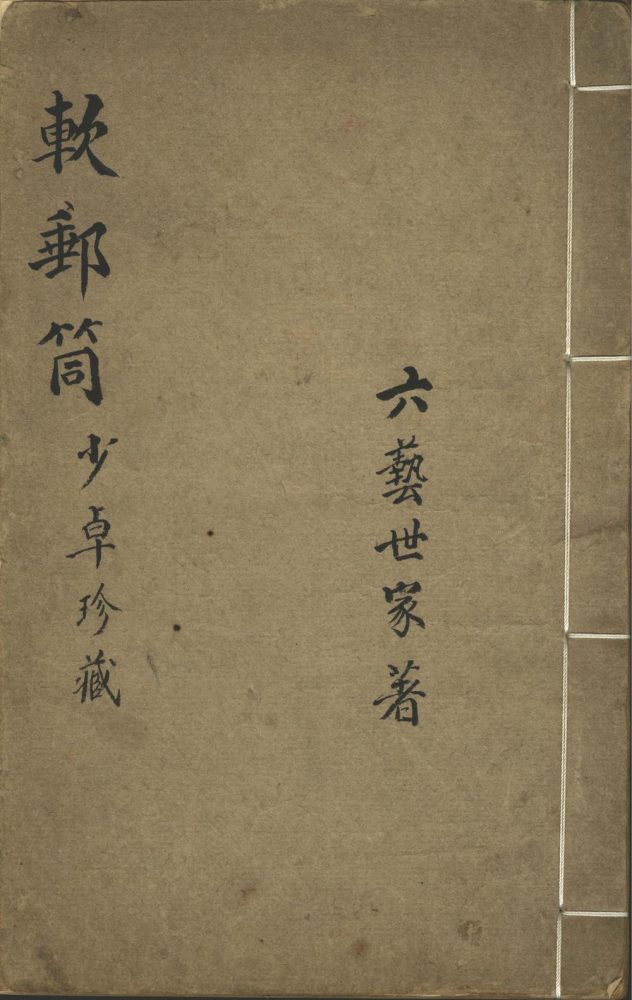 六藝世家著
軟郵筒少卓珍藏